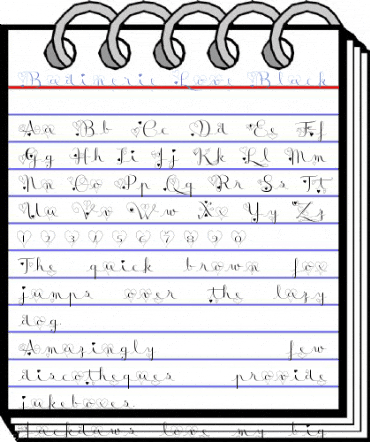 Radimerie Love Black
Aa Bb Cc Dd Ee Ff
Gg Hh Ii Jj Kk Ll Mm
Nn Oo Pp Qq Rr Ss Tt
Uu Vv Ww Xx Yy Zz
1 2 3 4 5 6 7 8 9 0
The quick brown fox
jumps over the lazy
dog.
Amazingly few
discotheques provide
jukeboxes.
Jackdaws love my big